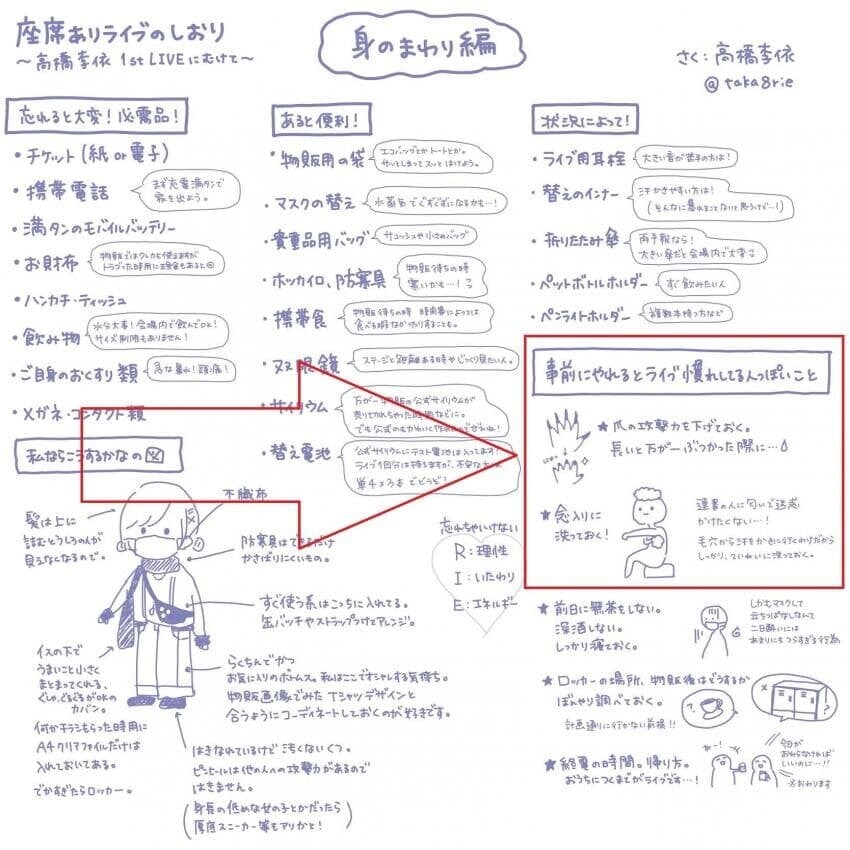 座席ありライブのしおり
〜高橋李依 1st LIVEにむけて〜
身のまわり編
さく：高橋李依
@taka8rie
忘れると大変！必需品！
・チケット(紙 or 電子)
・携帯電話
まず充電満タンで
家を出よう。
・満タンのモバイルバッテリー
・お財布
物販ではクレカも使えますが
トラブった時用に現金もあると◎
・ハンカチ・ティッシュ
・飲み物
水分大事！会場内で飲んでOK！
サイズ制限もありません！
・ご自身のおくすり類
急な暴れ！頭痛！
・メガネ・コンタクト類
あると便利！
・物販用の袋
エコバッグとかトートとか。
サッとしまってスッとはけよう。
・マスクの替え
水蒸気でぐずぐずになるかも…！
・貴重品用バッグ
サコッシュや小さめバッグ
・ホッカイロ、防寒具
物販待ちの時
寒いかも…！
・携帯食
物販待ちの時 時間帯によっては
食べる暇なかったりすることも。
・双眼鏡
ステージと距離ある時やじっくり見たい人。
・サイリウム
万が一物販の公式サイリウムが
売り切れちゃった時用などに。
でも公式のもかわいく作
・替え電池
公式サイリウムにテスト電池は入ってます！
ライブ1回分は持ちますが、不安な
単4×3本でどうぞ！
状況によって！
・ライブ用耳栓
大きい音が苦手の方は！
・替えのインナー
汗かきやすい方は！
(そんなに暴れることないと思うけど…！)
・折りたたみ傘
雨予報なら！
大きい傘だと会場内で大変
・ペットボトルホルダー
すぐ飲みたい人
・ペンライトホルダー
複数本持つ方など
事前にやれるとライブ慣れしてる人っぽいこと
★爪の攻撃力を下げておく。
長いと万が一ぶつかった際に…
★念入りに
洗っておく！
運番の人に匂いで迷惑
かけたくない…！
毛穴から汗をかきに行くわけだから
しっかり、ていねいに洗っておく。
★前日に無茶をしない。
深酒しない。
しっかり寝ておく。
しかもマスクして
立ちっぱなしなんて
二日酔いには
あまりにもつらすぎる行為
★ロッカーの場所、物販後はどうするか
ぼんやり調べておく。
計画通りに行かない前提!!
★終電の時間。帰り方。
おうちにつくまでがライブです…！
わー！
今日が
おわらなければ
いいのに…!!
※おわります
私ならこうするかなの図
髪は上に
詰むとうしろの人が
見えなくなるので。
不織布
防寒具はできるだけ
かさばりにくいもの。
すぐ使う系はこっちに入れてる。
缶バッチやストラップつけてアレンジ。
らくちんでかつ
お気に入りのボトムス。私はここでオシャレする気持ち。
物販画像でみたTシャツデザインと
合うようにコーディネートしておくのが好きです。
はきなれているけど汚くないくつ。
ピンヒールは他の人への攻撃力があるので
はきません。
(身長の低めな女の子とかだったら
厚底スニーカー等もアリかと！)
イスの下で
うまいこと小さく
まとまってくれる、
ぐしゃぐるぐるがOKの
カバン。
何かチラシもらった時用に
A4クリアファイルだけは
入れておいてある。
でかすぎたらロッカー。
忘れちゃいけない
R：理性
I：いたわり
E：エネルギー